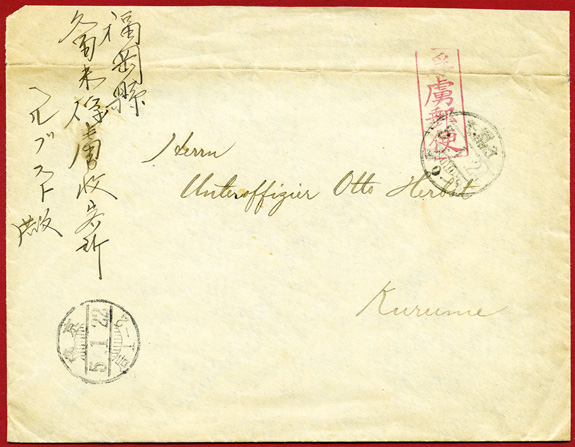 福岡縣
久留米俘虜收容所
ヘルブスト殿
俘虜郵便
Herrn
Unteroffizier Otto Herbst
Kurume
5.1.22